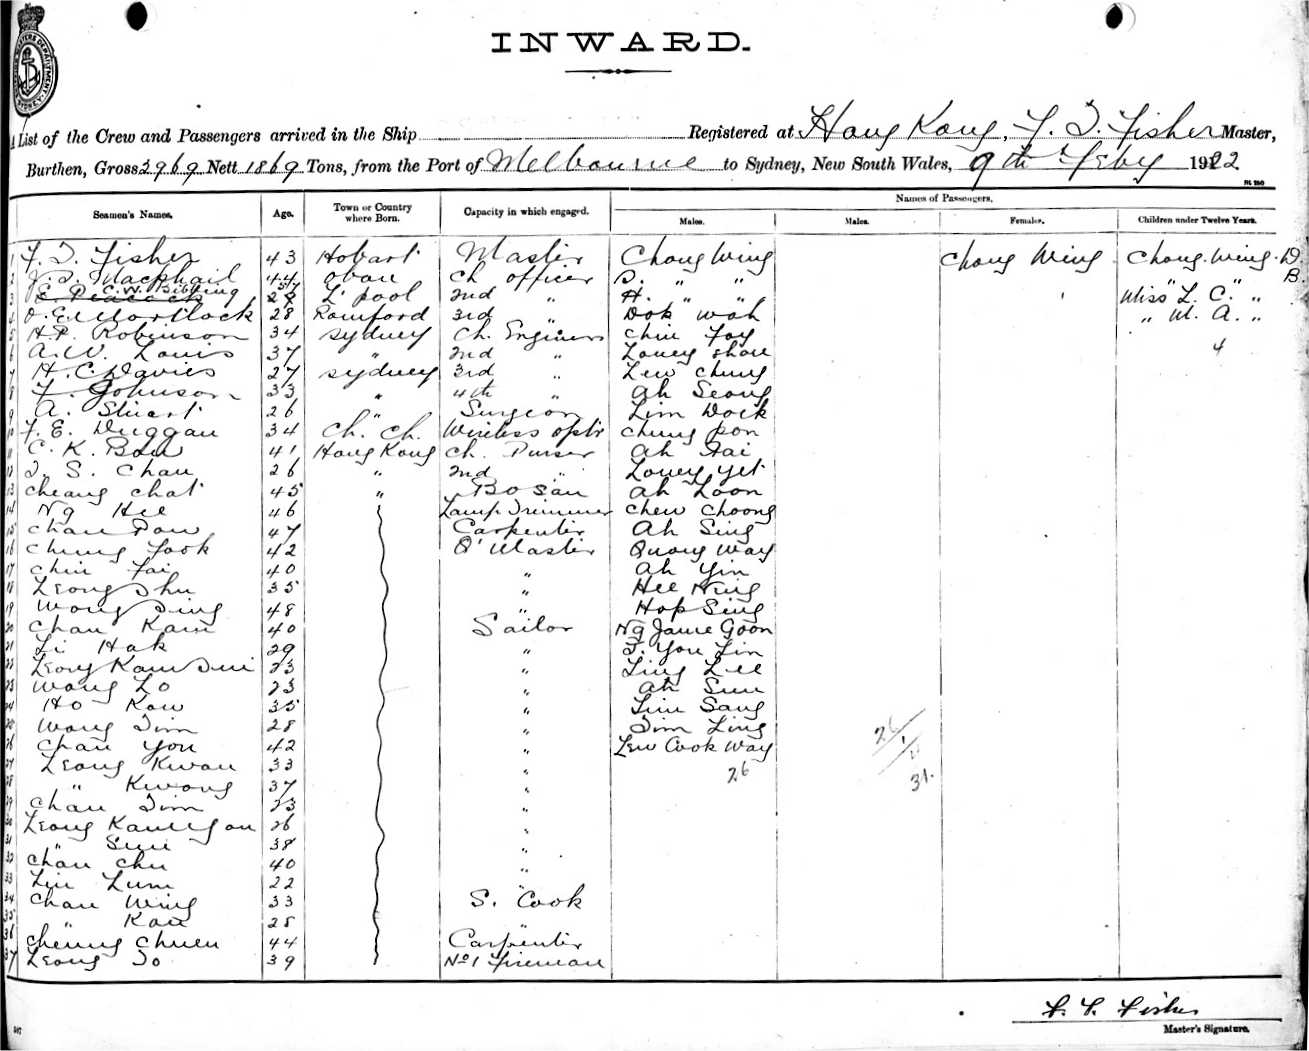 INWARD.
List of the Crew and Passengers arrived in the Ship Registered at Hong Kong, F. T. Fisher Master,
Burthen, Gross 3969 Nett 1869 Tons, from the Port of Melbourne to Sydney, New South Wales, 9th Feby 1922
Names of Passengers.
Seamen's Names. Age. Town or Country where Born. Capacity in which engaged. Males. Males. Females. Children under Twelve Years.
1 F. T. Fisher 43 Hobart Master Chong Wing Chong Wing Chong Wing D.
2 J. S. Macphail 44 Oban Ch officer B. " " " B.
C. W. Bibbing 57
3 E Peacock 28 L'pool 2nd " H. " " Miss L. C. "
4 O. E. Mortlock 28 Romford 3rd " Dok Wah " M. A. "
5 H. P. Robinson 34 Sydney Ch. Engineer Chin Foy
6 A. W. Louis 37 " 2nd " Louey Shou 4
7 H. C. Davies 27 Sydney 3rd " Lew Chung
8 F. Johnson 33 " 4th " Ah Seong
9 A. Stuart 26 " Surgeon Lim Dock
10 F. E. Duggan 34 Ch. Ch. Wireless optr Chung Pon
11 C. K. Bau 41 Hong Kong Ch. Purser Ah Tai
12 T. S. Chau 26 " 2nd " Louey Yet
13 Cheang Chat 45 " Bosun Ah Loon
14 Ng Hee 46 Lamp Trimmer Chew Choong
15 Chan Pow 47 Carpenter Ah Sing
16 Chung Fook 42 Q'Master Quong Way
17 Chin Fai 40 " Ah Yin
18 Leong Shu 35 " Hee Ning
19 Wong Sing 48 " Hop Sing
20 Chan Kam 40 Sailor Ng Jame Goon
21 Li Hak 29 " T. You Lin
22 Leong Kam Sui 23 " Ling Lee
23 Wong Lo 23 " Ah Sun
24 Ho Kow 35 " Lim Sang
25 Wong Tim 28 " Tim Ling
26 Chan You 42 " Lew Cook Way
27 Leong Kwan 33 " 26 26
28 " Kwong 37 " 1
29 Chan Tim 23 " 4
30 Leong Kam Yau 26 " 31.
31 " Sui 38 "
32 Chan Chu 40 "
33 Liu Lum 22 "
34 Chan Wing 33 S. Cook
35 " Kau 28 "
36 Cheung Chuen 44 Carpenter
37 Leong So 39 No1 Fireman
F. T. Fisher
Master's Signature.